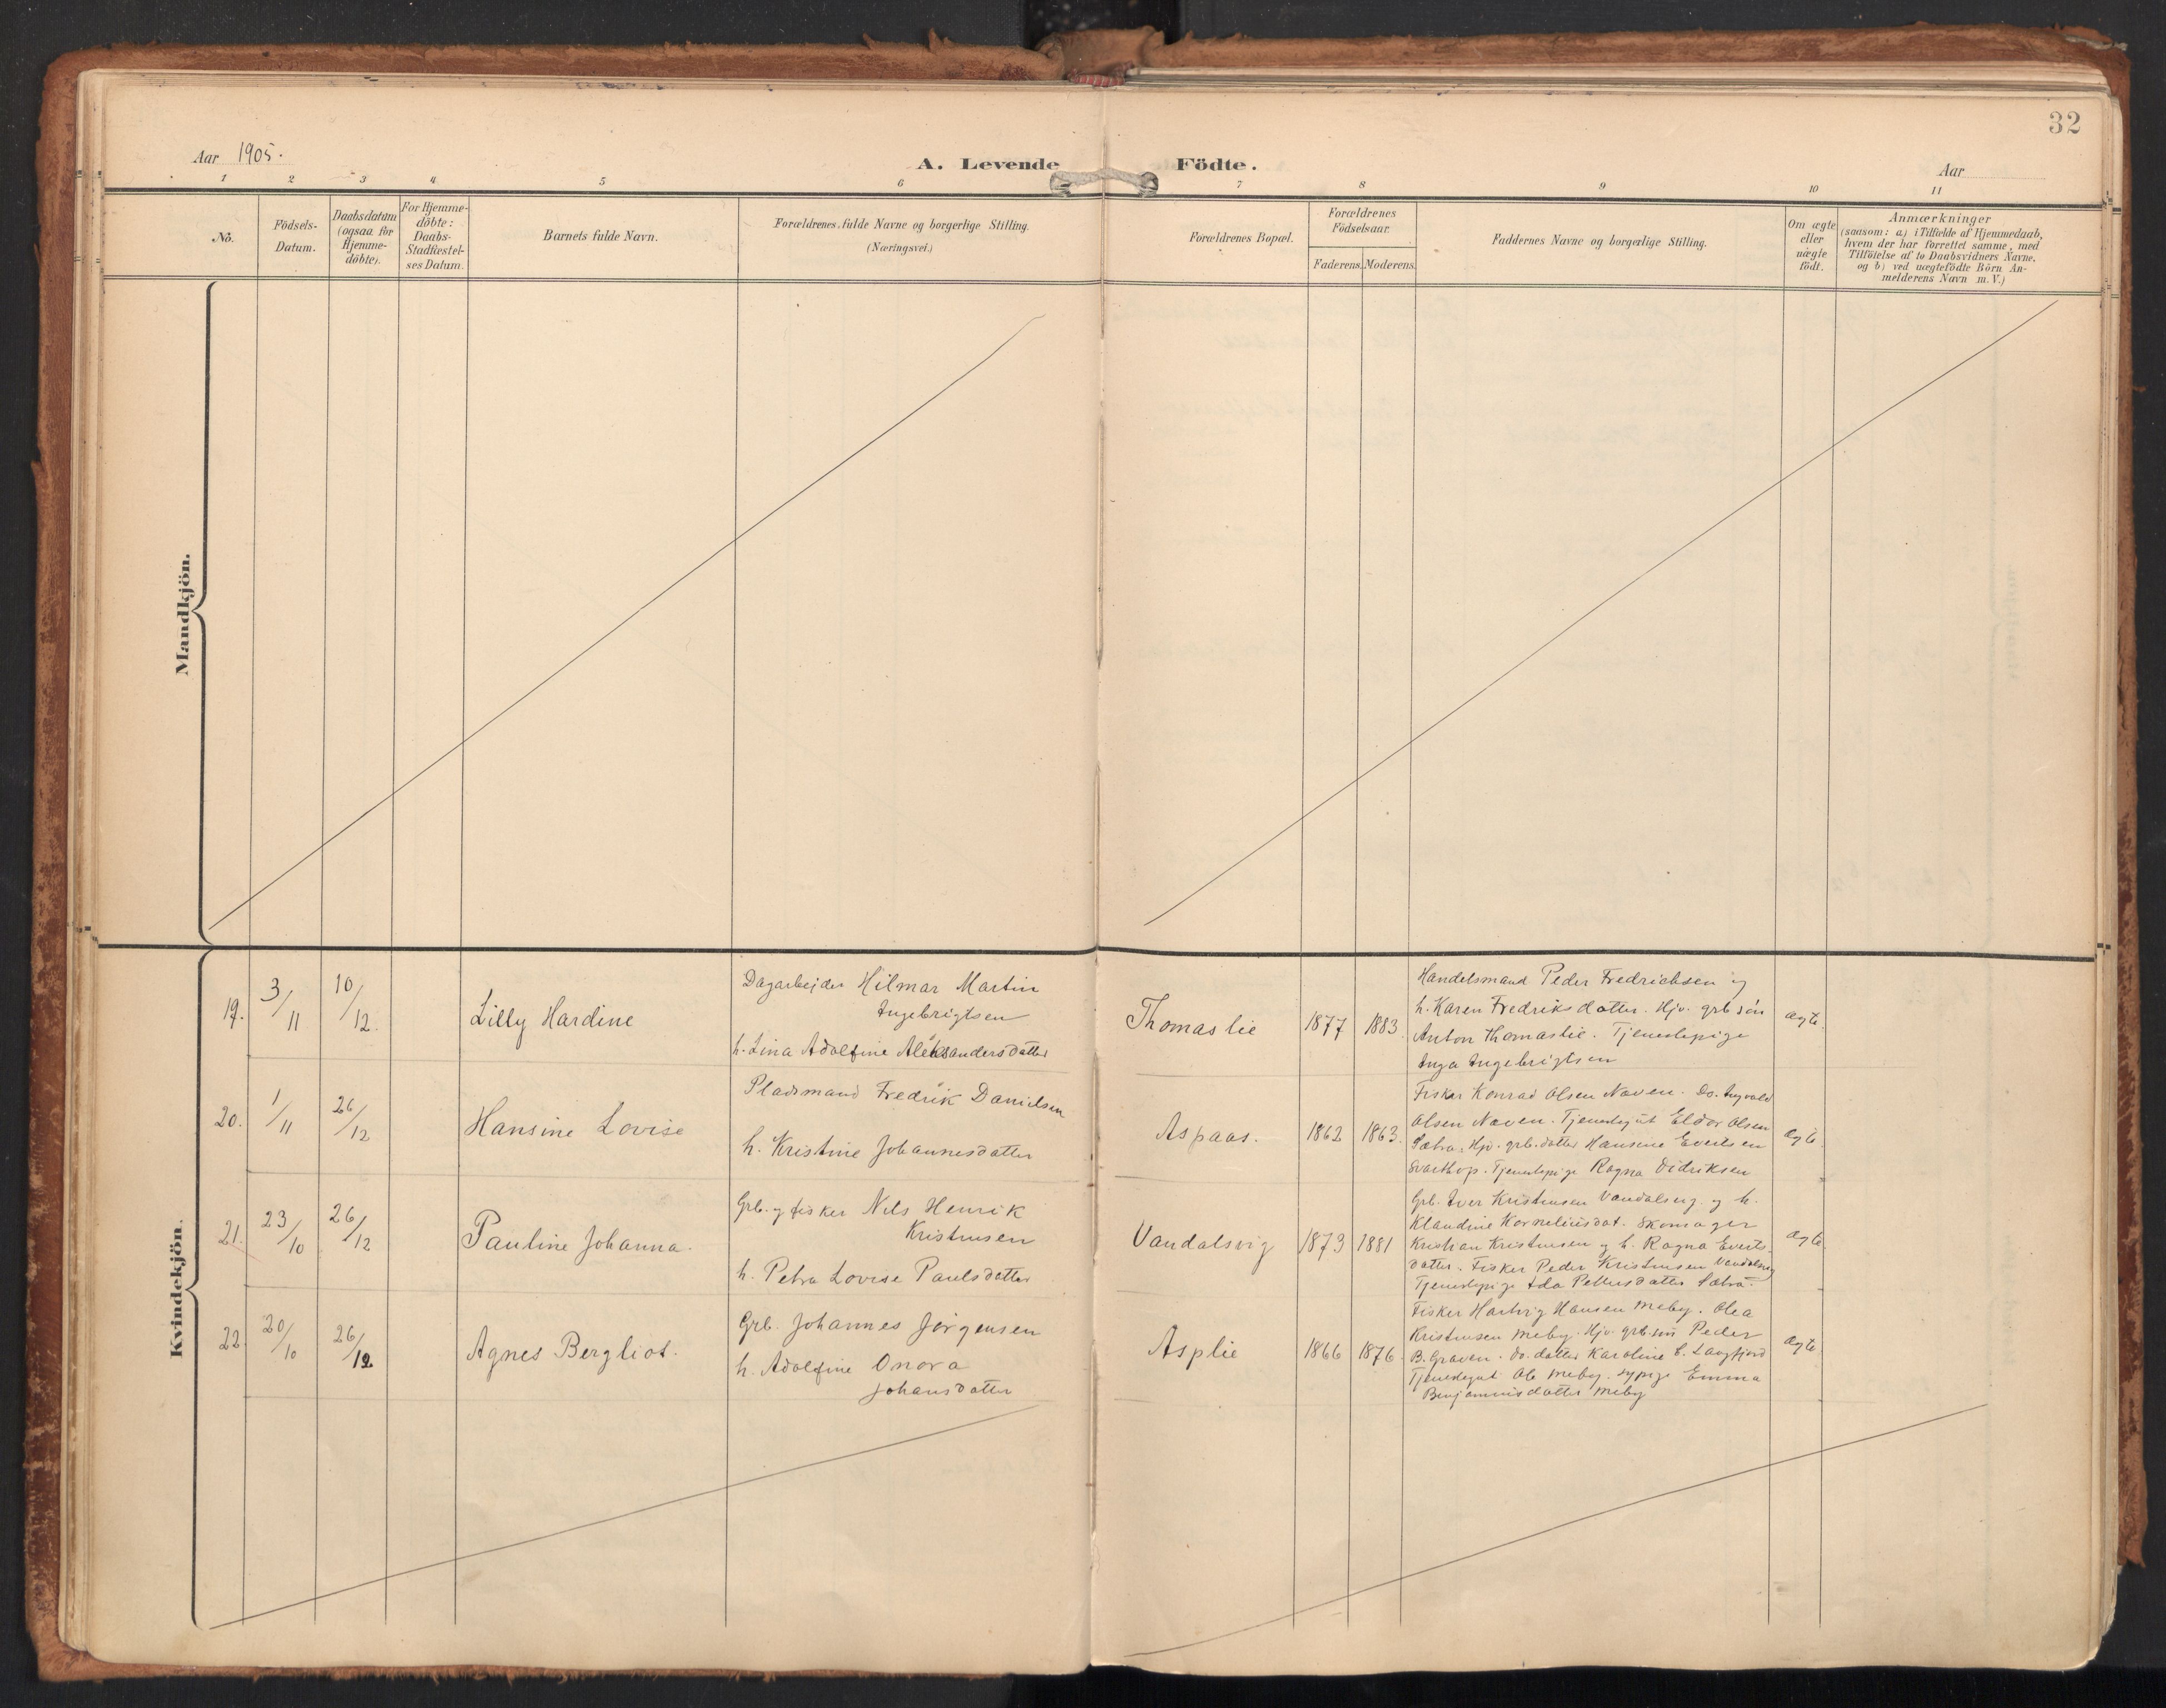 32
Aar 1905.
A. Levende Födte.
Aar
1 2 3 4 5 6 7 8 9 10 11
No.
Födsels-
Datum.
Daabsdatum
(ogsaa for
Hjemme-
döbte).
For Hjemme-
döbte:
Daabs-
Stadfæstel-
ses Datum.
Barnets fulde Navn.
Forældrenes fulde Navne og borgerlige Stilling.
(Næringsvei.)
Forældrenes Bopæl.
Forældrenes
Födselsaar.
Faderens. Moderens.
Faddernes Navne og borgerlige Stilling.
Om ægte
eller
uægte
födt.
Anmærkninger
(saasom: a) i Tilfælde af Hjemmedaab,
hvem der har forrettet samme, med
Tilföielse af to Daabsvidners Navne,
og b) ved uægtefödte Börn An-
melderens Navn m.V.)
Mandkjön.
Kvindekjön.
19. 3/11 10/12. Lilly Hardine
Dagarbejder Hilmar Martin
Ingebrigtsen
h. Lina Adolfine Aleksandersdatter
Thomaslie 1877 1883.
Handelsmand Peder Fredrichsen og
h. Karen Fredriksdatter. Hjv. grb sön
Anton Thomaslie. Tjenestepige
Inga Ingebrigtsen
ægte.
20. 1/11 26/12 Hansine Lovise
Pladsmand Fredrik Danielsen
h. Kristine Johannesdatter
Aspaas. 1862 1863.
Fisker Konrad Olsen Naven. Do. Ingvald
Olsen Naven. Tjenestegut Eldor Olsen
Sætra. Hjv. grb. datter Hansine Evertsen
Svarthop. Tjenestepige Ragna Didriksen
ægte.
21. 23/10 26/12 Pauline Johanna.
Grb. og fisker Nils Henrik
Kristensen
h. Petra Lovise Paulsdatter
Vandalsvig 1873 1881
Grb. Iver Kristensen Vandalsvig og h.
Klaudine Korneliusdat. Skomager
Kristian Kristensen og h. Ragna Everts-
datter. Fisker Peder Kristensen Vandalsvig
Tjenestepige Ida Pettersdatter Sætra.
ægte.
22. 20/10 26/12 Agnes Bergliot.
Grb. Johannes Jörgensen
h. Adolfine Onora
Johansdatter
Asplie 1866 1876.
Fisker Hartvig Hansen Meby. Olea
Kristensen Meby. Hjv. grb. sön Peder
B. Graven. do. datter Karoline E. Langfjord
Tjenestegut Ole Meby. Sypige Emma
Benjaminsdatter Meby
ægte.